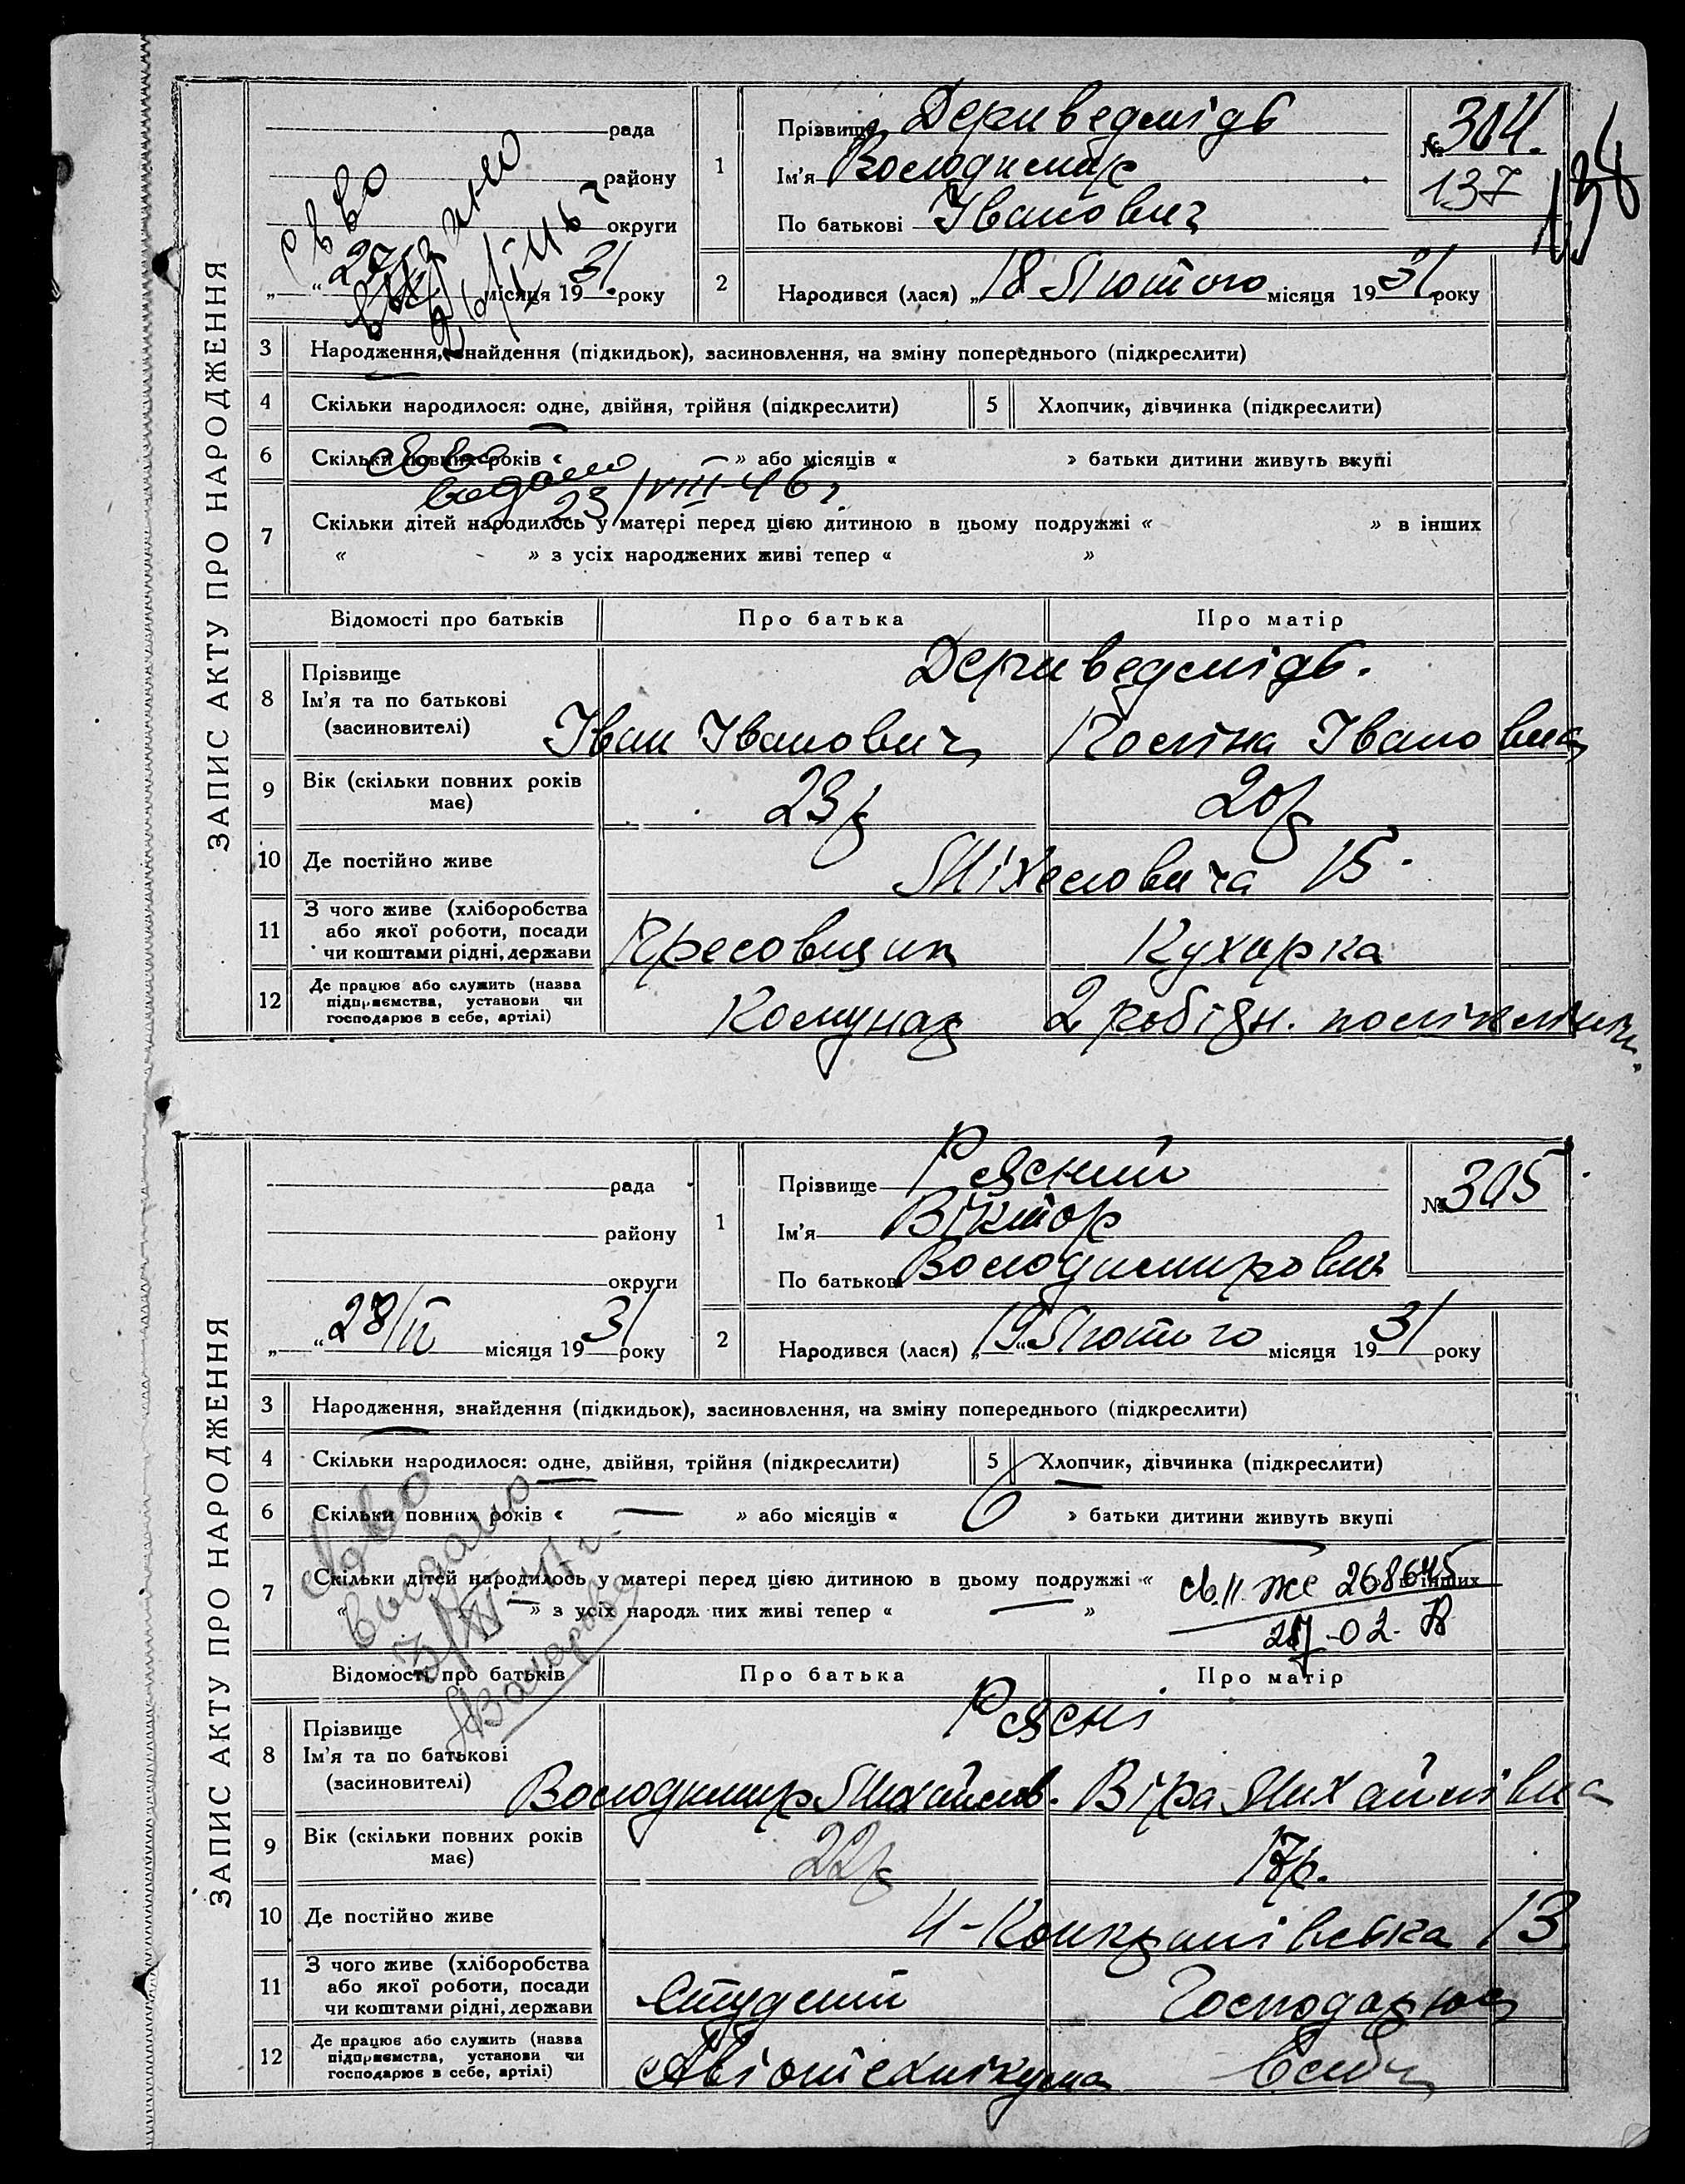 ЗАПИС АКТУ ПРО НАРОДЖЕННЯ
рада
району
округи
місяця 1931 року
1
Прізвище Дериведмідь
Ім'я Володимир
По батькові Іванович
№ 304.
137
138
2
Народився (лася) „18 Лютого місяця 1931 року
3 Народження, знайдення (підкидьок), засиновлення, на зміну попереднього (підкреслити)
4 Скільки народилося: одне, двійня, трійня (підкреслити)
5 Хлопчик, дівчинка (підкреслити)
6 Скільки повних років « » або місяців « » батьки дитини живуть вкупі
видано
23/VIII-46 г
7 Скільки дітей народилось у матері перед цією дитиною в цьому подружжі « » в інших
« » з усіх народжених живі тепер « »
Відомості про батьків
Про батька
Про матір
8 Прізвище
Ім'я та по батькові
(засиновителі)
Дериведмідь.
Іван Іванович
Іванівна
9 Вік (скільки повних років має)
23р
20р
10 Де постійно живе
15.
11 З чого живе (хліборобства або якої роботи, посади чи коштами рідні, держави
Пресовщик
Кухарка
12 Де працює або служить (назва підприємства, установи чи господарює в себе, артілі)
Комунар
2 робідн. поліклініки
ЗАПИС АКТУ ПРО НАРОДЖЕННЯ
рада
району
округи
„ “ 28/II місяця 1931 року
1
Прізвище Рясний
Ім'я Віктор
По батькові Володимирович
№ 305
2
Народився (лася) „19“ Лютого місяця 1931 року
3 Народження, знайдення (підкидьок), засиновлення, на зміну попереднього (підкреслити)
4 Скільки народилося: одне, двійня, трійня (підкреслити)
5 Хлопчик, дівчинка (підкреслити)
6 Скільки повних років « — » або місяців « 6 » батьки дитини живуть вкупі
7 Скільки дітей народилось у матері перед цією дитиною в цьому подружжі « » в інших
« — » з усіх народжених живі тепер « — »
св. II же 268645
Відомості про батьків
Про батька
Про матір
8 Прізвище
Ім'я та по батькові
(засиновителі)
Рясні
Володимир Михайлов.
Віра Михайлівна
9 Вік (скільки повних років має)
22р
17р.
10 Де постійно живе
13
11 З чого живе (хліборобства або якої роботи, посади чи коштами рідні, держави
Студент
Господарює
12 Де працює або служить (назва підприємства, установи чи господарює в себе, артілі)
Авіотехнікума
в себе